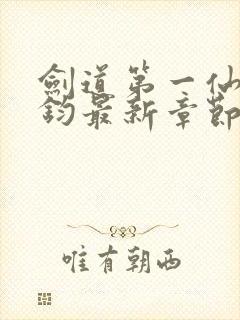 劍道第一仙
鈞最新章節
唯有朝西